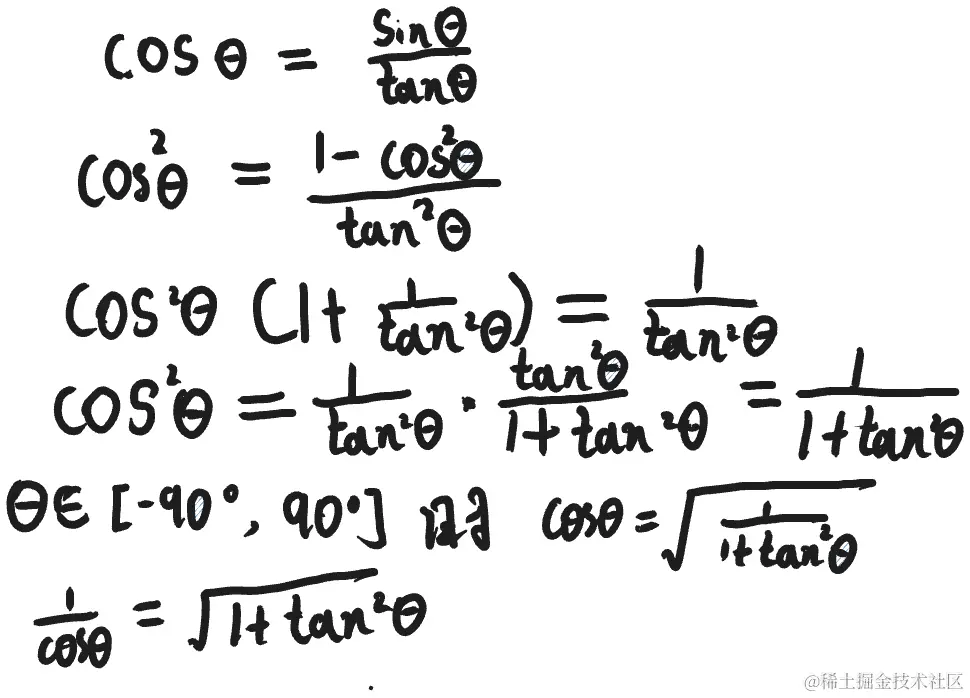 cosθ = sinθ/tanθ
cos²θ = (1 - cos²θ)/tan²θ
cos²θ (1 + 1/tan²θ) = 1/tan²θ
cos²θ = 1/tan²θ · tan²θ/(1 + tan²θ) = 1/(1 + tan²θ)
θ∈[-90°, 90°] cosθ = √(1/(1 + tan²θ))
1/cosθ = √(1 + tan²θ)
@稀土掘金技术社区